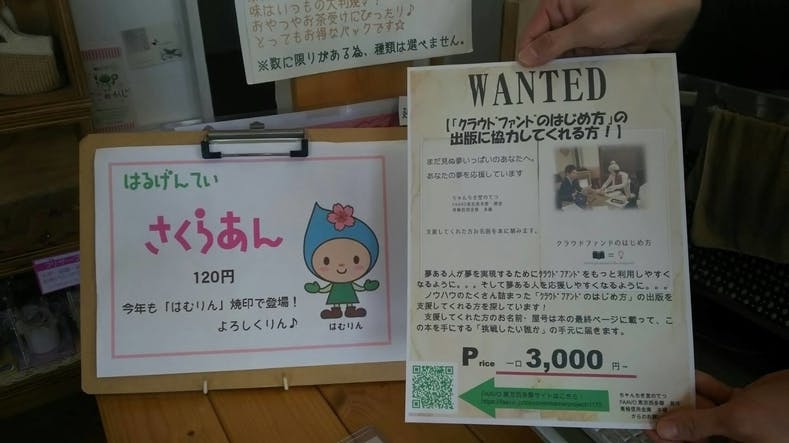 味はいつもの大判焼き！
おやつやお茶受けにぴったり♪
とってもお得なパックです☆
※数に限りがある為、種類は選べません。
はるげんてい
さくらあん
120円
今年も「はむりん」焼印で登場！
よろしくりん♪
はむりん
WANTED
【「クラウドファンドのはじめ方」の
出版に協力してくれる方！】
まだ見ぬ夢いっぱいのあなたへ。
あなたの夢を応援しています
ちゃんちき堂のてつ
支援してくれた方お名前を本に刻みます。
クラウドファンドのはじめ方
夢ある人が夢を実現するためにクラウドファンドをもっと利用しやすく
なるように。。。そして夢ある人を応援しやすくなるように。。。
ノウハウのたくさん詰まった「クラウドファンドのはじめ方」の出版を
支援してくれる方を探しています！
支援してくれた方のお名前・屋号は本の最終ページに載って、こ
の本を手にする「挑戦したい誰か」の手元に届きます。
Price 一口 3,000円−
FAAVO東京西多摩サイトはこちら！
ちゃんちき堂のてつ
FAAVO東京西多摩
青梅信用金庫